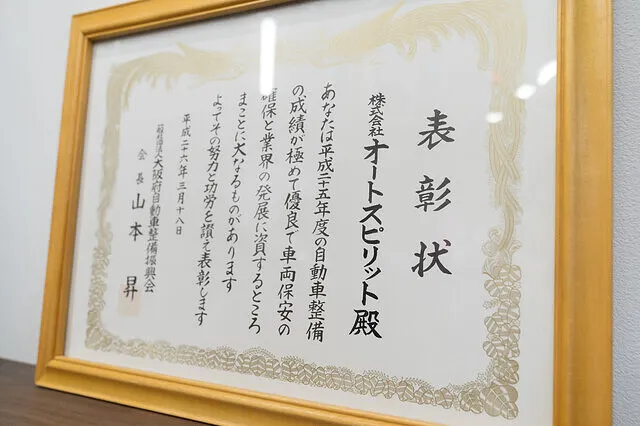 表彰状
株式会社オートスピリット殿
あなたは平成二十五年度の自動車整備
の成績が極めて優良で車両保安の
確保と業界の発展に資するところ
まことに大なるものがあります
よってその努力と功労を讃え表彰します
平成二十六年三月十八日
一般社団法人大阪府自動車整備振興会
会長 山本 昇